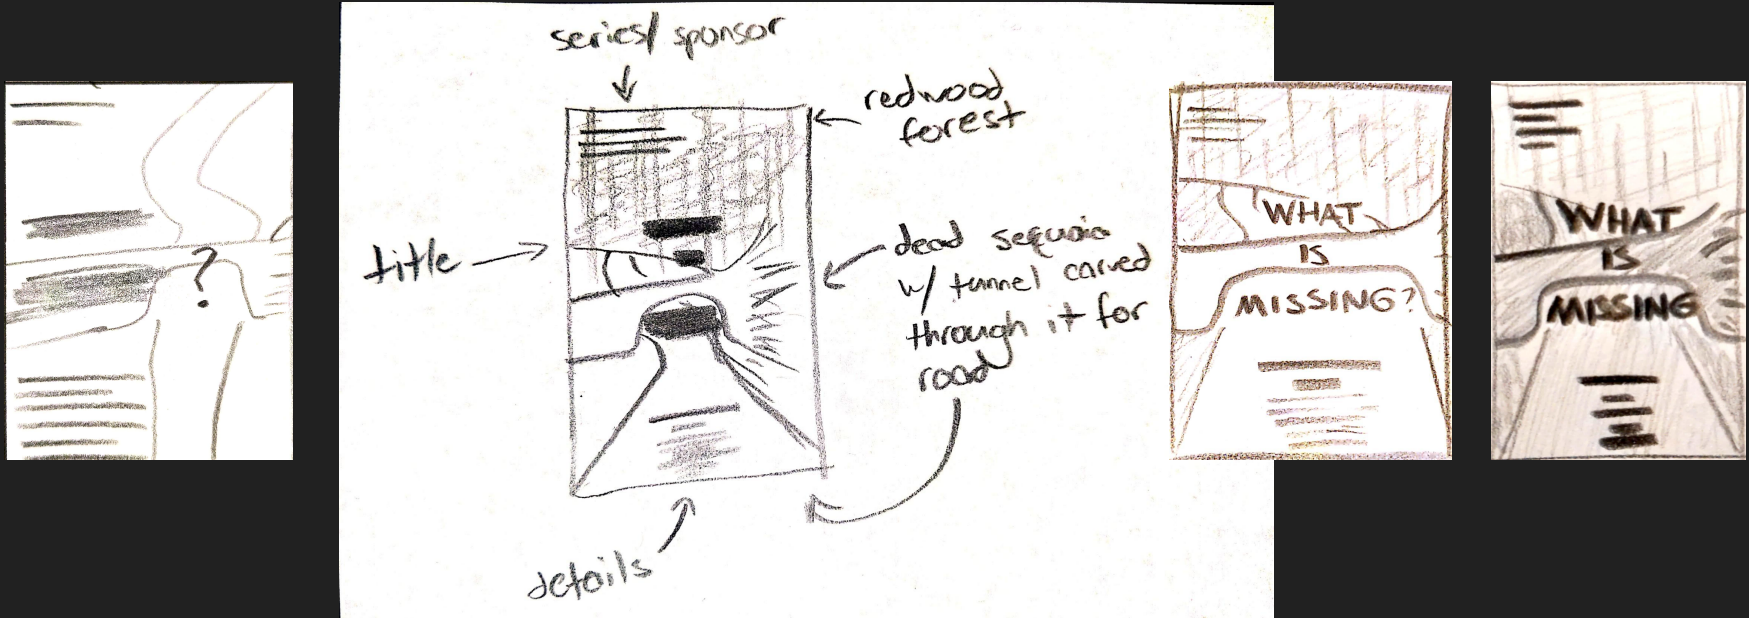 ?
series/ sponsor
redwood
forest
title
dead sequoia
w/ tunnel carved
through it for
road
details
WHAT
IS
MISSING?
WHAT
IS
MISSING